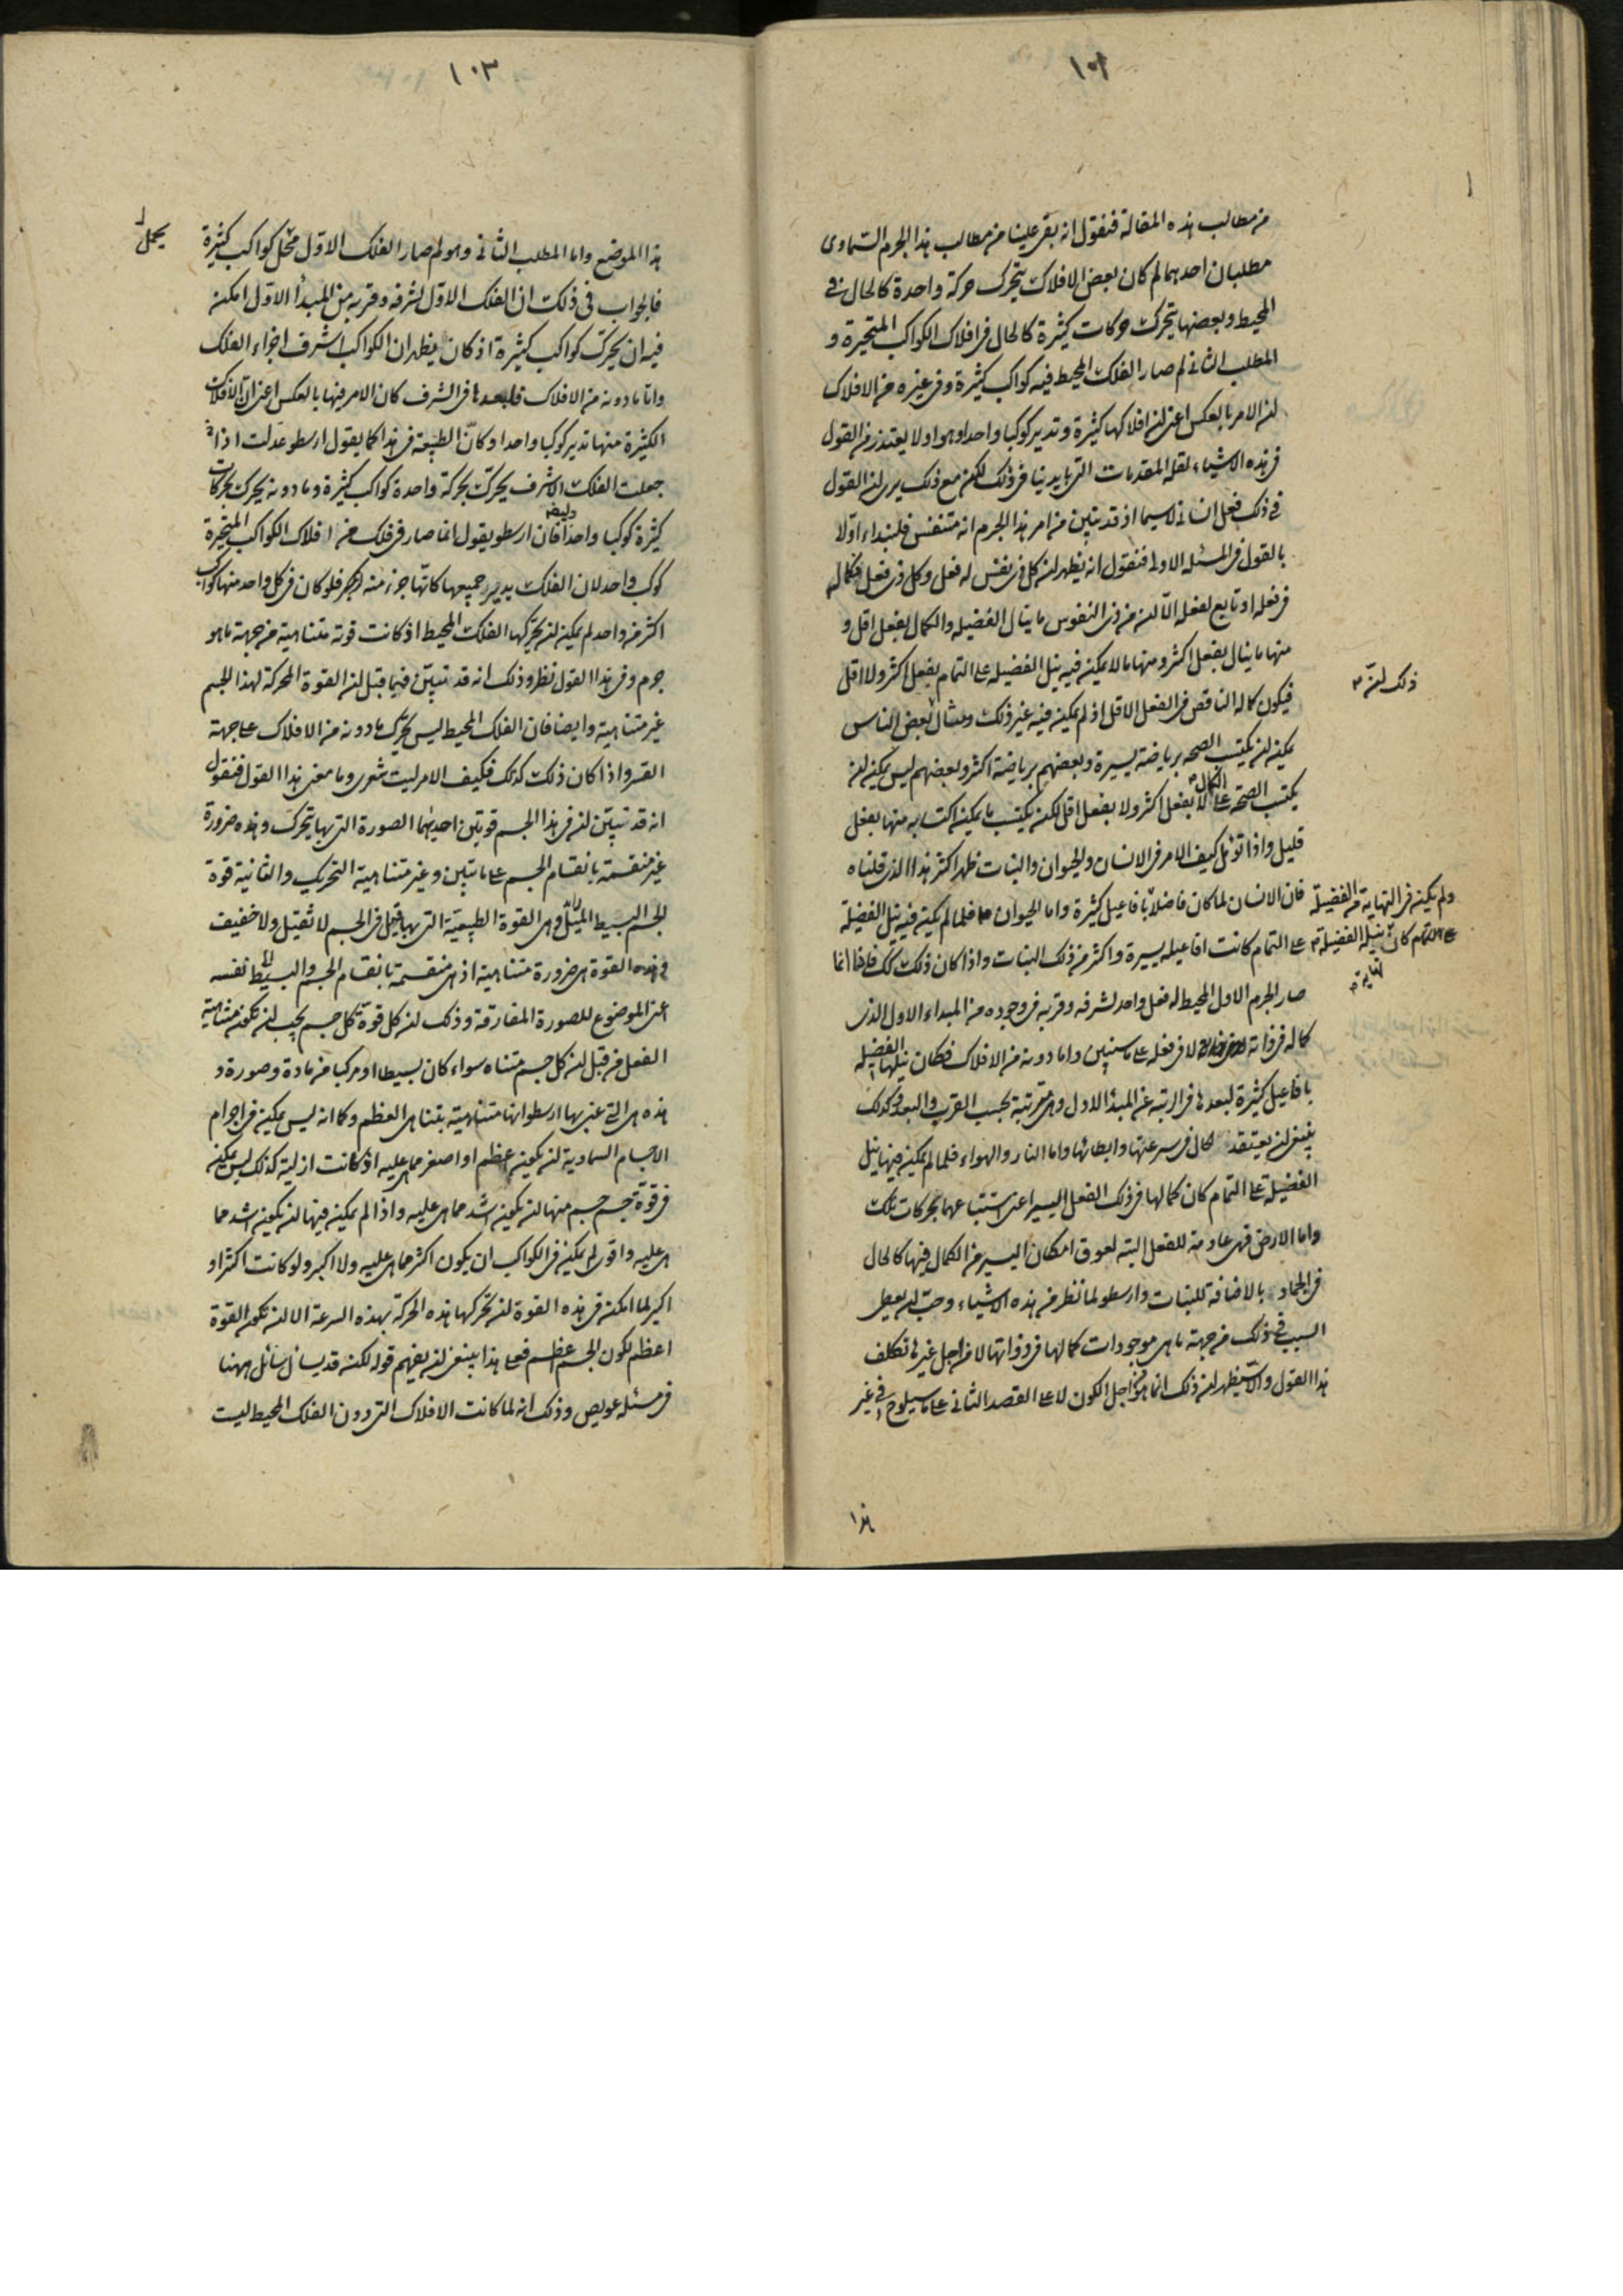 ١٠٢
من مطالب هذه المقالة فنقول انه بقى علينا من مطالب هذا الجرم السماوى
مطلبان احدهما لم كان بعض الافلاك يتحرك حركة واحدة كالحال فى
المحيط وبعضها يتحرك حركات كثيرة كالحال فى افلاك الكواكب المتحيرة و
المطلب الثانى لم صار الفلك المحيط فيه كواكب كثيرة وفى غيره من الافلاك
الامر بالعكس اعنى ان افلاكها كثيرة وتدير كوكبا واحدا وهو اولا يعتذر من القول
فى هذه الاشياء لقلة المقدمات التى بايدينا فى ذلك لكن مع ذلك يرى ان القول
فى ذلك فعل انسانى لا سيما اذ قد تبين من امر هذا الجرم انه متنفس فلنبداء اولا
بالقول فى المسئلة الاولى فنقول انه يظهر ان كل ذى نفس له فعل وكل ذى فعل فكماله
فى فعله او تابع لفعله الا ان من ذى النفوس ما ينال الفضيلة والكمال بفعل اقل و
منها ما ينال بفعل اكثر ومنها ما لا يمكن فيه نيل الفضيلة على التمام بفعل اكثر ولا اقل
فيكون كماله الناقص فى الفعل الاقل اذ لم يمكن فيه غير ذلك ومثال ذلك ان بعض الناس
يمكن ان يكتسب الصحة برياضة يسيرة وبعضهم برياضة اكثر وبعضهم ليس يمكن ان
يكتسب الصحة على الكمال لا بفعل اكثر ولا بفعل اقل لكن يكتسب ما يمكن اكتسابه منها بفعل
قليل واذا تؤمل كيف الامر فى الانسان والحيوان والنبات ظهر اكثر هذا الذى قلناه
فان الانسان لما كان فاضلا بافاعيل كثيرة واما الحيوان فلما لم يمكن فيه نيل الفضيلة
على التمام كانت افاعيله يسيرة واكثر من ذلك النبات واذا كان ذلك كك فاذا انما
صار الجرم الاول المحيط له فعل واحد لشرفه وقربه فى وجوده من المبداء الاول الذى
كماله فى ذاته لا فى فعله على ما سنبين واما دونه من الافلاك فكان نيلها الفضيلة
بافاعيل كثيرة لبعدها فى الرتبة عن المبدأ الاول وهى مترتبة بحسب القرب والبعد وكذلك
ينبغى ان يعتقد الحال فى سرعتها وابطائها واما النار والهواء فلما لم يمكن فيها نيل
الفضيلة على التمام كان كمالها فى ذلك الفعل اليسير اعنى استتباعها بحركات تلك
واما الارض فهى عادمة للفعل البتة لعوق امكان اليسير من الكمال فيها كالحال
فى الجماد بالاضافة للنبات وارسطو لما نظر من هذه الاشياء وجب ان يعطى
السبب فى ذلك من جهة ما هى موجودات كمالها فى ذواتها لا من اجل غيرها تكلف
هذا القول والا سيظهر ان ذلك انما هو من اجل الكون لا على القصد الثانى على ما سيلوح فى غير
ذلك ان
ولم يكن فى النهاية من الفضيلة
على التمام كان نيله الفضيلة
هذا
١٠٣
هذا الموضع واما المطلب الثانى وهو لم صار الفلك الاول محل كواكب كثيرة
فالجواب فى ذلك ان الفلك الاول لشرفه وقربه من المبدأ الاول امكن
فيه ان يحرك كواكب كثيرة اذ كان يظهر ان الكواكب اشرف اجزاء الفلك
واما ما دونه من الافلاك فلبعدها فى الشرف كان الامر فيها بالعكس اعنى ان الافلاك
الكثيرة منها تدير كوكبا واحدا وكأن الطبيعة فى هذا كما يقول ارسطو عدلت اذا
جعلت الفلك الاشرف يحرك بحركة واحدة كواكب كثيرة وما دونه يحرك بحركات
كثيرة كوكبا واحدا وايضا فان ارسطو يقول انما صار فى فلك من افلاك الكواكب المتحيرة
كوكب واحد لان الفلك يدير جميعها كانها جزء منه فلو كان فى كل واحد منها كواكب
اكثر من واحد لم يمكن ان يحركها الفلك المحيط اذ كانت قوته متناهية من جهة ما هو
جرم وفى هذا القول نظر وذلك انه قد تبين فيما قبل ان القوة المحركة لهذا الجسم
غير متناهية وايضا فان الفلك المحيط ليس يحرك ما دونه من الافلاك على جهة
القسر واذا كان ذلك كذلك فكيف الامر ليت شعرى وما معنى هذا القول فنقول
انه قد تبين ان فى هذا الجسم قوتين احديهما الصورة التى بها يتحرك وهذه ضرورة
غير منقسمة بانقسام الجسم على ما تبين وغير متناهية التحريك والثانية قوة
الجسم البسيط وهى القوة الطبيعية التى بها قيل فى الجسم لا ثقيل ولا خفيف
وهذه القوة هى ضرورة متناهية اذ هى منقسمة بانقسام الجسم والبسيط نفسه
اعنى الموضوع للصورة المفارقة وذلك ان كل قوة كل جسم يجب ان تكون متناهية
الفعل من قبل ان كل جسم متناه سواء كان بسيطا او مركبا من مادة وصورة و
هذه هى التى عنى بها ارسطو انها متناهية بتناهى العظم وكما انه ليس يمكن فى اجرام
الاجسام السماوية ان يكون اعظم او اصغر مما هى عليه اذ كانت ازلية كذلك ليس يمكن
فى قوة جسم جسم منها ان يكون اشد مما هى عليه واذا لم يمكن فيها ان يكون اشد مما
هى عليه واقوى لم يمكن فى الكواكب ان يكون اكثر مما هى عليه ولا اكبر ولو كانت اكثر او
اكبر لما امكن فى هذه القوة ان تحركها هذه الحركة بهذه السرعة الا ان تكون القوة
اعظم لكون الجسم اعظم فعلى هذا ينبغى ان يفهم قوله لكنه قد يسأل سائل ههنا
فى مسئلة عويص وذلك انه لما كانت الافلاك التى دون الفلك المحيط ليست
يحمل